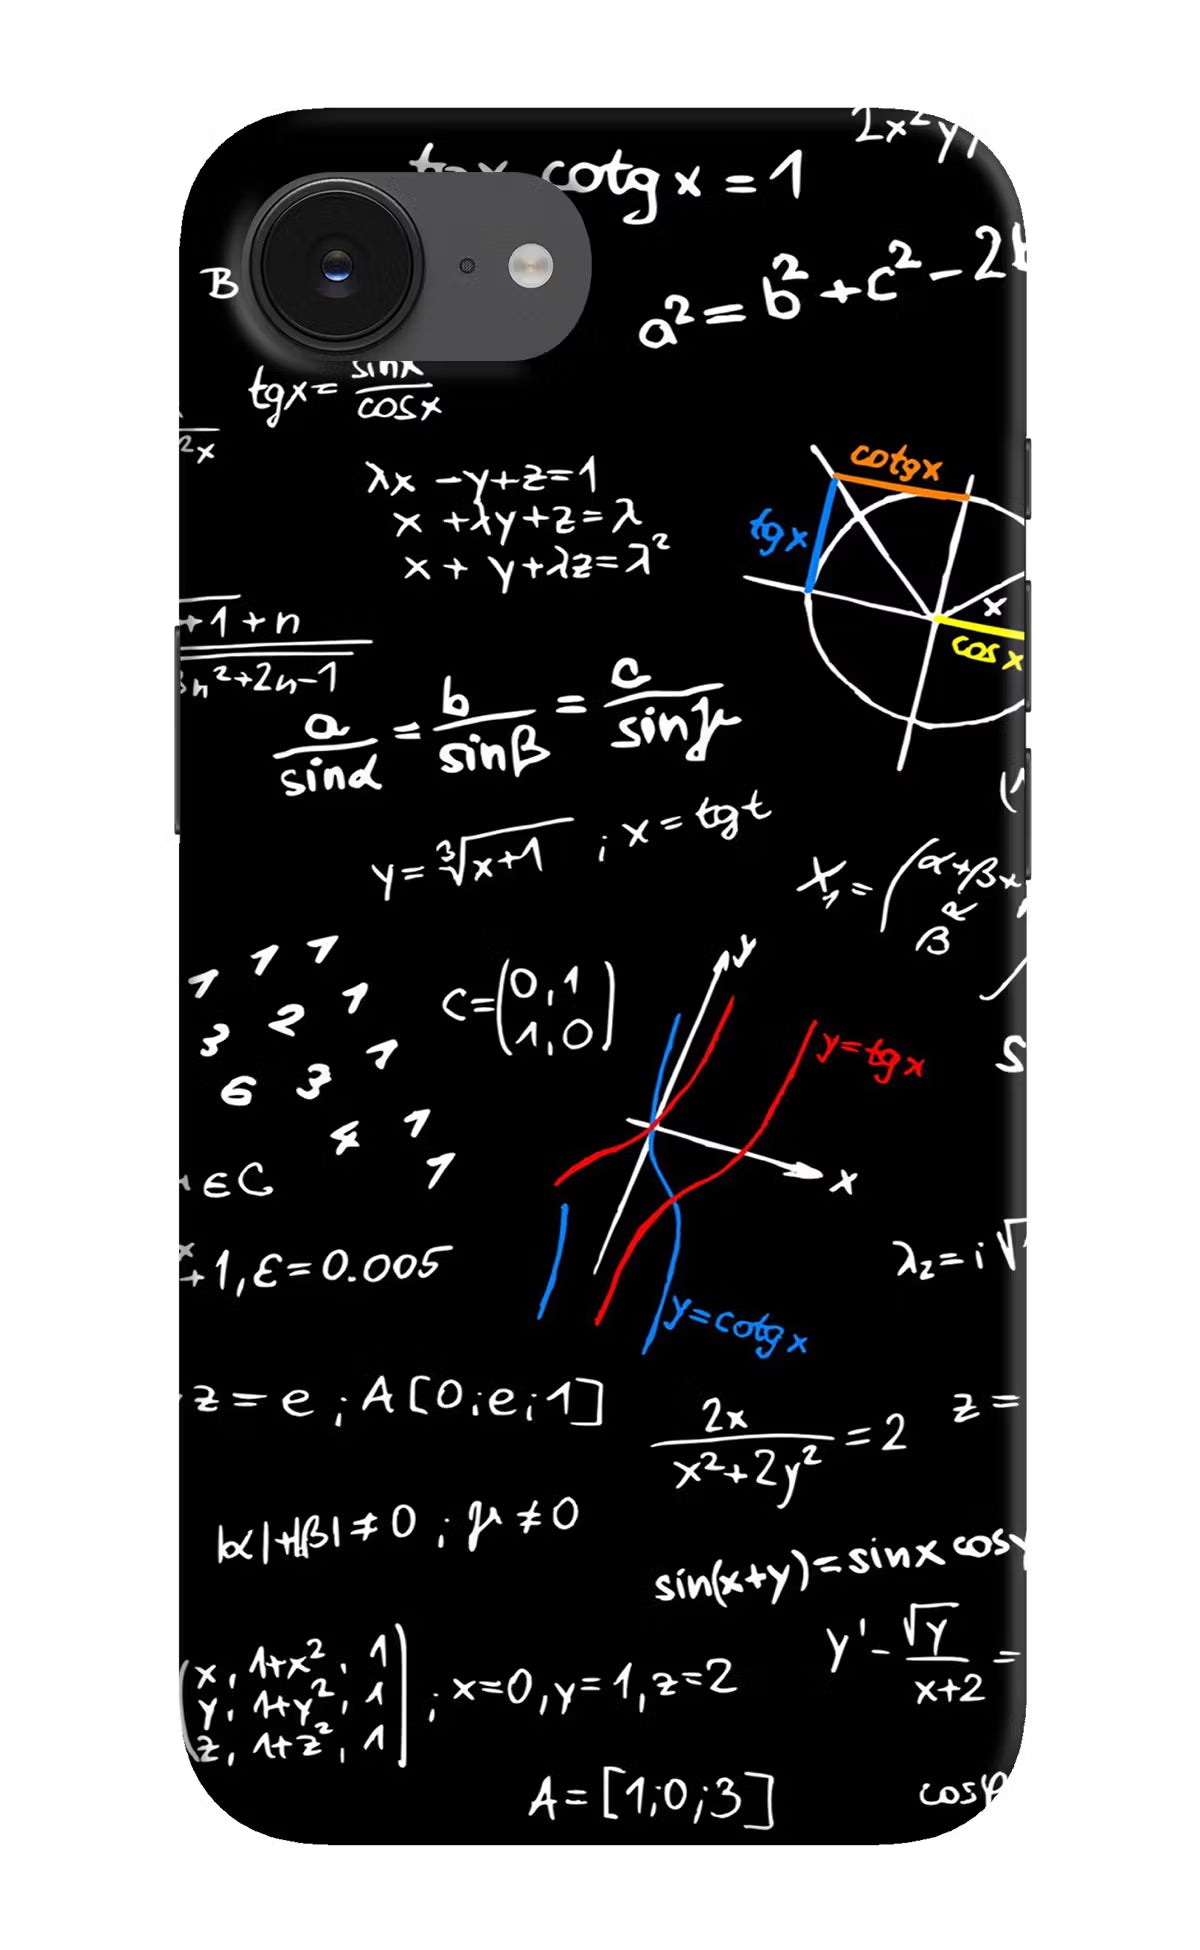 2x²y
cotg x = 1
B
a² = b² + c² - 2
tgx = sinx/cosx
2x
λx - y + z = 1
x + λy + z = λ
x + y + λz = λ²
cotgx
tgx
x
cos x
+1 + n
3n² + 2n - 1
a/sinα = b/sinβ = c/sinγ
y = ∛(x+1) ; x = tgt
X₁ = (α+β+
β
1 1 1
3 2 1
6 3 1
4 1
1
C = (0, 1
1, 0)
y
y = tgx
x
y = cotgx
∈C
+1, ε = 0.005
λ₂ = i√
z = e ; A[0; e; 1]
2x/(x² + 2y²) = 2
z =
|α|+|β| ≠ 0 ; γ ≠ 0
sin(x+y) = sinx cosy
y' - √y/(x+2) =
x, 1+x², 1
y, 1+y², 1
z, 1+z², 1
; x=0, y=1, z=2
A = [1; 0; 3]
cosφ